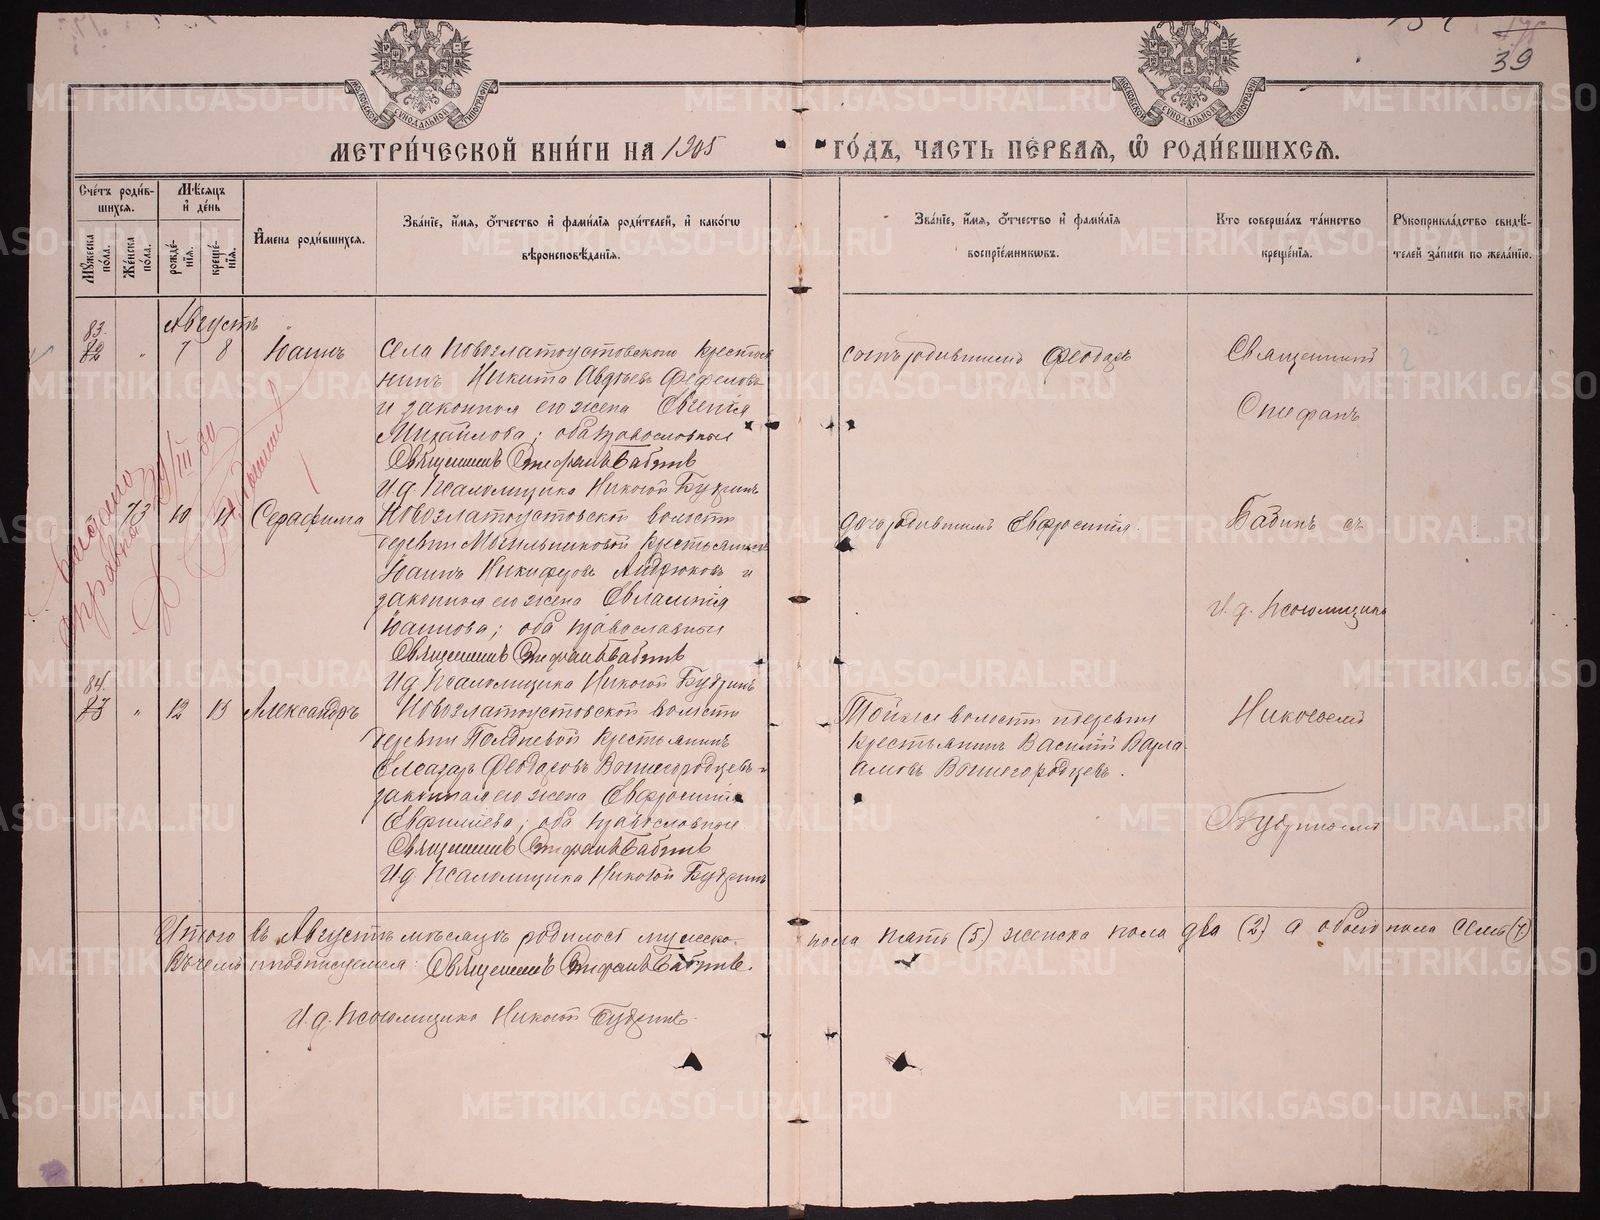 39
МЕТРИ́ЧЕСКОЙ КНИ́ГИ НА 1905 ГО́ДЪ, ЧАСТЬ ПЕ́РВАЯ, Ѡ҆ РОДИ́ВШИХСЯ.
Сче́тъ роди́в-
шихся.
Мѣ́сяцъ
и҆ де́нь
Мꙋ́жеска по́ла.
Же́нска по́ла.
рожде́-
нїя.
креще́-
нїя.
И҆мена роди́вшихся.
Зва́нїе, и҆́мя, ѻ҆́тчество и҆ фами́лїя роди́телей, и҆ како́гѡ
вѣроисповѣ́данїя.
Зва́нїе, и҆́мя, ѻ҆́тчество и҆ фами́лїя
воспрїе́мникѡвъ.
Кто совершалъ та́инство
креще́нїя.
Рꙋкоприкла́дство свидѣ́-
телей за́писи по жела́нїю.
Августъ
83.
82 " 7 8 Іоаннъ
Села Новозлатоустовскаго крестья
нинъ Никита Авдѣевъ Фефеловъ
и законная его жена Евгенія
Михайлова; оба православные
Священникъ Стефанъ Бабинъ
И.д. Псаломщика Николай Будринъ
Священникъ
Стефанъ
73 10 11 Серафима
Новозлатоустовской волости
деревни Мыльниковой крестьянинъ
Іоаннъ Никифоровъ Андрюковъ и
законная его жена Евлампія
Іоаннова; оба православные
Священникъ Стефанъ Бабинъ
И.д. Псаломщика Николай Будринъ
Бабинъ съ
И. д. Псаломщика
84.
83 " 12 13 Александръ
Новозлатоустовской волости
деревни Полдневой крестьянинъ
Елеазаръ Феодоровъ Вышегородцевъ и
законная его жена Евфросинія
оба православные
Священникъ Стефанъ Бабинъ
И.д. Псаломщика Николай Будринъ
Той же волости и деревни
крестьянинъ Василій Варла-
амовъ Вышегородцевъ.
Николаемъ
Будринымъ
Итого въ Августѣ мѣсяцѣ родилось мужеска пола пять (5) женска пола два (2) а обоего пола семь (7)
В чемъ и подписуемся: Священникъ Стефанъ Бабинъ.
И. д. Псаломщика Николай Будринъ.
METRIKI.GASO-URAL.RU